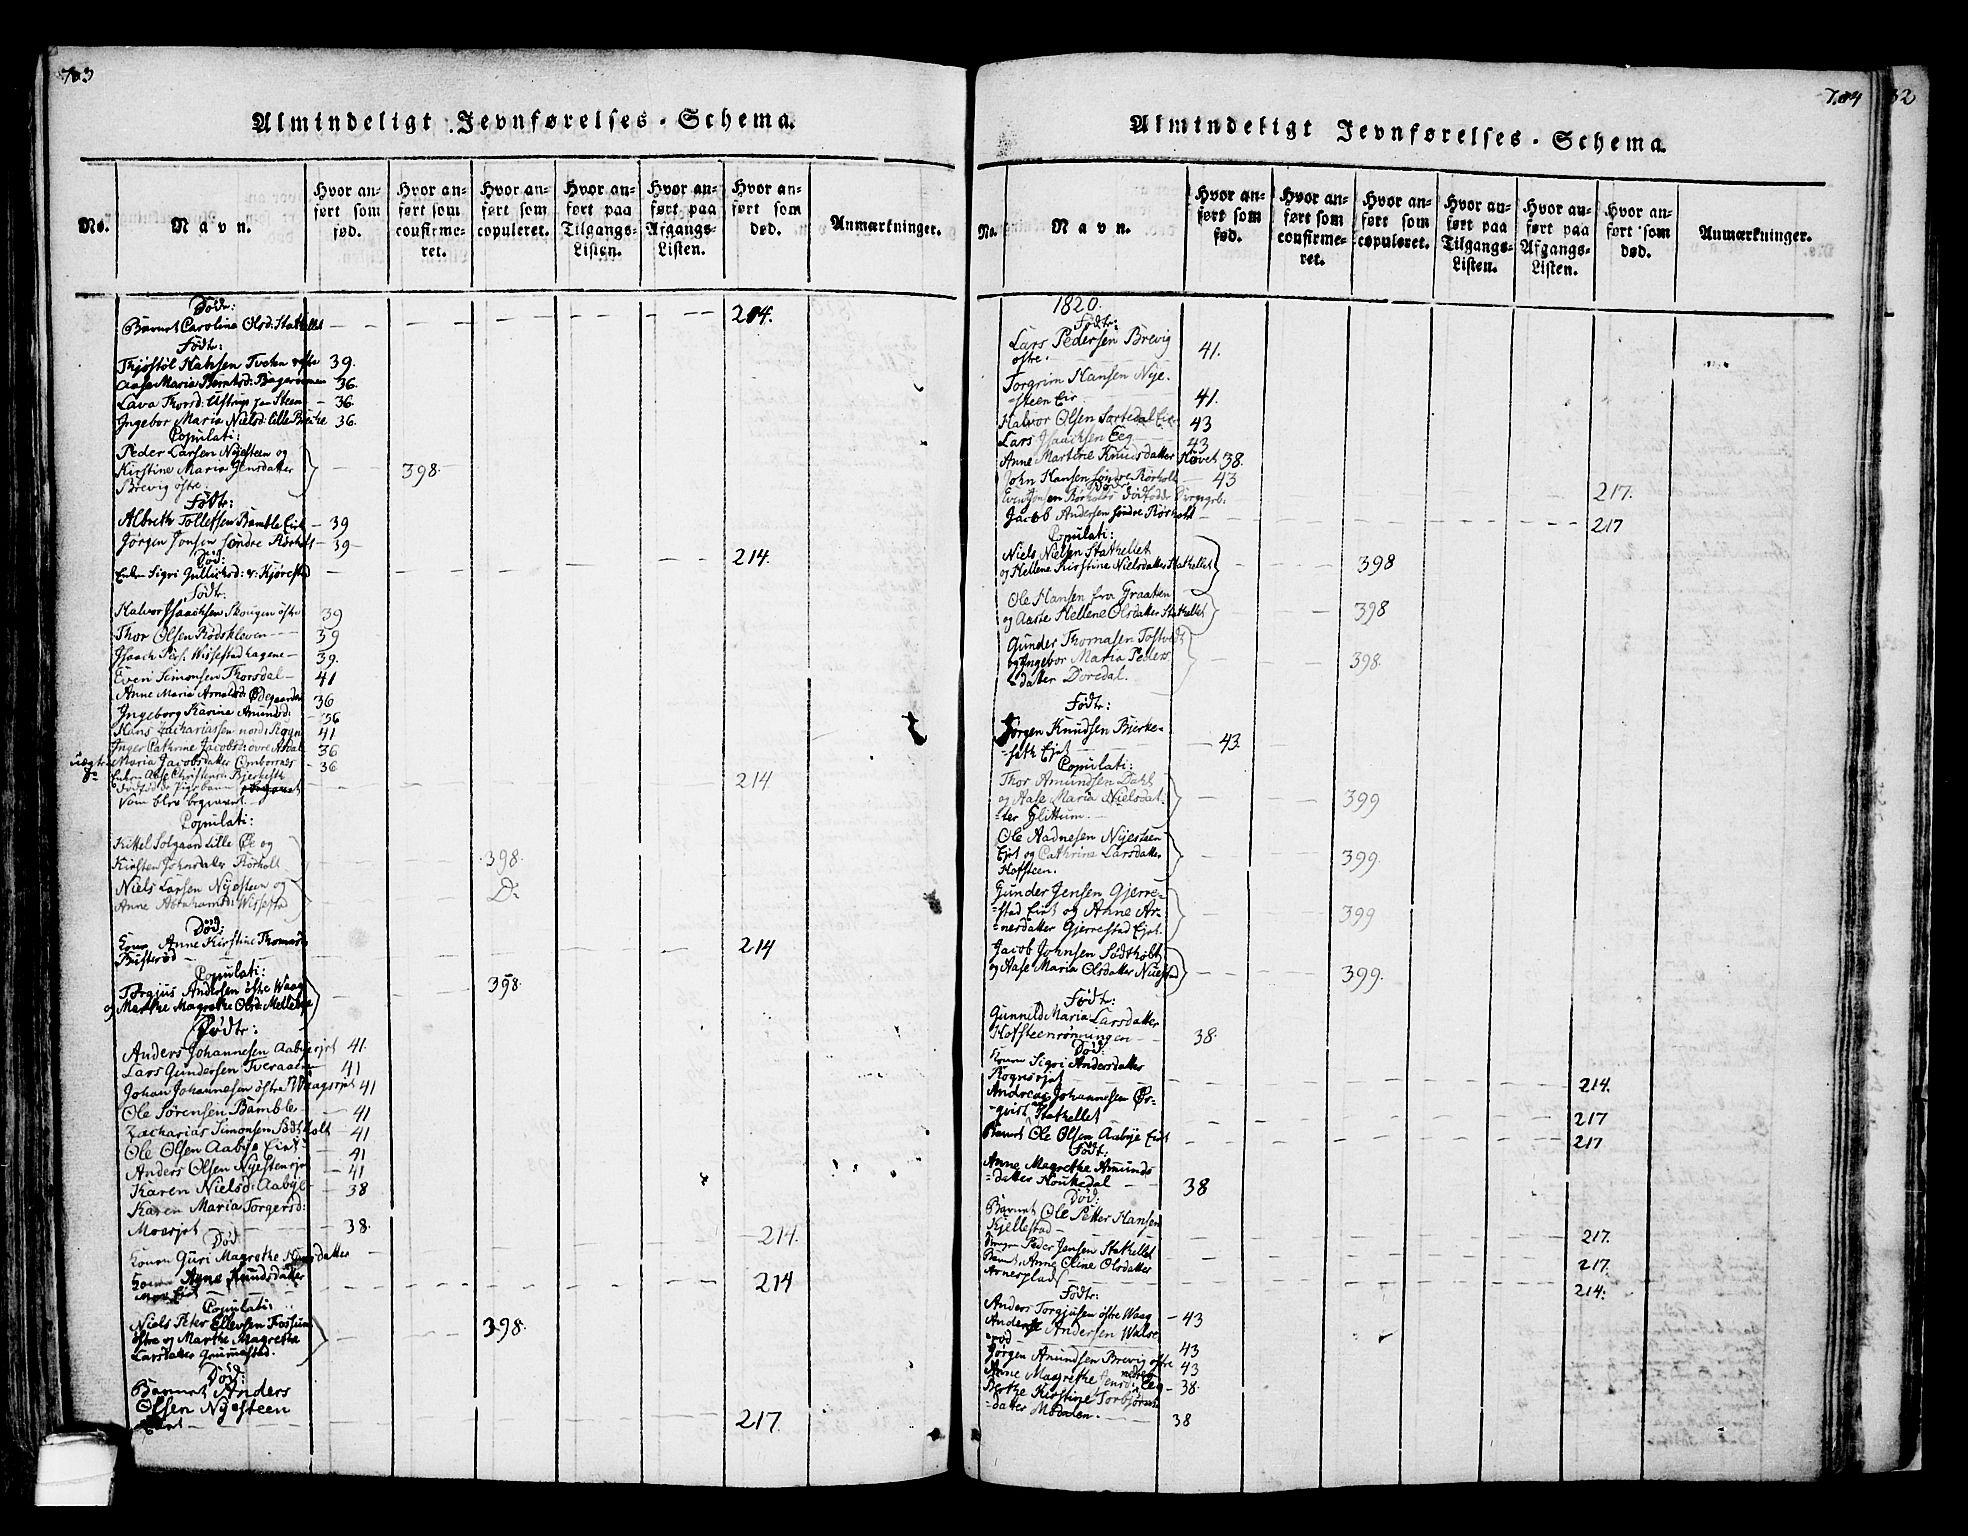 703
Almindeligt Jevnførelses-Schema.
No.
Navn.
Hvor anført som fød.
Hvor anført som confirmeret.
Hvor anført som copuleret.
Hvor anført paa Tilgangs-Listen.
Hvor anført paa Afgangs-Listen.
Hvor anført som død.
Anmærkninger.
Død:
Barnet Carolina Olsd: Stathellet 204.
Fødte:
Thjøstøl Hansen Tveten østre 39.
Aase Maria Berntsd: 36.
Lava Thorsd: Steen 36.
Ingebor Maria Nielsd: Lille 36.
Copulati:
Peder Larsen Nyesteen og
Kirstine Maria Jensdatter 398
Brevig østre.
Fødte:
Albreth Tollefsen Bamble Eie 39
Jørgen Jonsen søndre Rørholt 39
Død:
Enken Sigri Gullichsd: Kjørestad 214.
Fødte:
Halvor Isaachsen Skougen østre 39
Thor Olsen Rødskleven 39
Isaach Pers: Wissestadhagene 39.
Even Simonsen Thorsdal 41
Anne Maria Arnoldsd: Ødegaarden 36
Ingeborg Karine Amundsd: 36
Hans Zachariassen nord: Rogn 41
Inger Cathrine Jacobsd: øvre Asdal 36
Maria Jacobsdatter 36
Enken Aase Christensd: Bjerkeseth 214
dødfød Pigebarn
som blev begravet
Copulati:
Kittel Solgaard Lille Øe og
Kirsten Johnsdatter Rørholt 398.
Niels Larsen Nyesteen og D:
Anne Abrahamsd: Wissestad
Død:
Konen Anne Kirstine Thomasd:
Busterød 214
Copulati:
Torgius Andersen østre Waag 398.
og Marthe Magrethe Olsd:
Fødte:
Anders Johannesen Aabye ejet 41.
Lars Gundersen Tveraaen 41
Johan Johannesen østre Waagsejet 41
Ole Sørensen Bamble 41
Zacharias Simonsen Sødtholt 41
Ole Olsen Aabye Eiet 41
Anders Olsen Nyesteenejet 41
Karen Nielsd: Aabye 38
Karen Maria Torgersd:
Moeejet 38.
Død
Konen Guri Magrethe Hansdatter 214.
Konen Anne Knudsdatter
Moe Eiet 214
Copulati:
Niels Peter Ellevsen Fossum 398.
østre og Marthe Magrethe
Larsdatter Grummestad.
Død:
Barnet Anders
Olsen Nyesteen
Eiet 217.
704
Almindeligt Jevnførelses-Schema.
No.
Navn.
Hvor anført som fød.
Hvor anført som confirmeret.
Hvor anført som copuleret.
Hvor anført paa Tilgangs-Listen.
Hvor anført paa Afgangs-Listen.
Hvor anført som død.
Anmærkninger.
1820.
Fødte:
Lars Pedersen Brevig
østre. 41.
Torgrim Hansen Nye-
steen Eie 41.
Halvor Olsen Sortedal Eie 43
Lars Isaachsen Eeg 43
Anne Martine Knudsdatter Hovet 38.
John Hansen søndre Rørholt 43
Døde
Even Jensen Rørholts dødfødde Drengeb. 217.
Jacob Andersen søndre Rørholt 217
Copulati:
Niels Nielsen Stathellet
og Hellene Kirstine Nielsdatter Stathellet 398
Ole Hansen fra Graaten
og Aaste Hellene Olsdatter Stathellet 398
Gunder Thomasen Tostvedt
og Ingebor Maria Peders- 398.
datter Doredal.
Fødte:
Jørgen Knudsen Bjerke-
seth Ejet 43.
Copulati:
Thor Amundsen Dahl
og Aase Maria Nielsdat- 399
ter Glittum.
Ole Aadnesen Nyesteen
Ejet og Cathrine Larsdatter 399.
Hafsteen.
Gunder Jensen Gjerre-
stad Eiet og Anne Ar- 399
nesdatter Gjerrestad Ejet.
Jacob Johnsen Sødtholt
og Aase Maria Olsdatter 399.
Fødte:
Gunnild Maria Larsdatter
Hafsteenrønningen 38.
Død:
Konen Sigri Andersdatter
Rognsejet 214.
Andreas Johannesen Ør-
qvist Stathellet 217
Barnet Ole Olsen Aabye Eiet 217
Født:
Anne Magrethe Amunds-
datter Houkedal 38
Død:
Barnet Ole Petter Hansen
Kjellestad 217.
Peder Jensen Stathellet 217.
Barnet Anne Oline Olsdatter
Arnesplads 214.
Fødte:
Anders Torgjusen østre Waag 43
Anders Andersen Walse-
rød 43
Jørgen Amundsen Brevig østre 43
Anne Magrethe Jensd: nedre Eeg 38.
Berthe Kirstine Torbjørns-
datter Modalen. 38